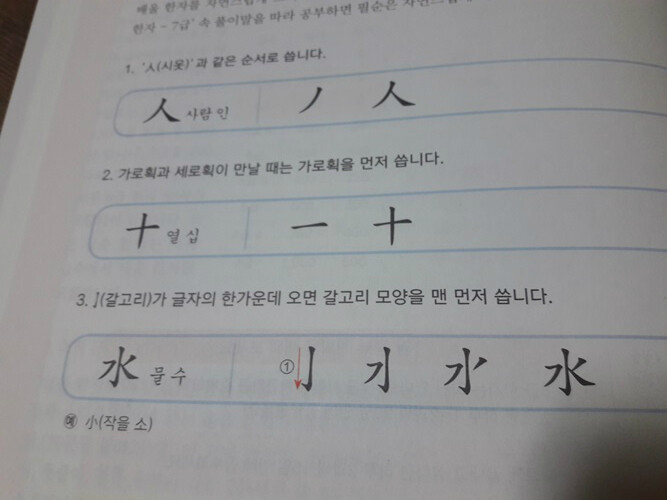 배울 한자를 자연스럽게
한자 - 7급' 속 풀이말을 따라 공부하면 필순은
1. '人(시옷)'과 같은 순서로 씁니다.
人 사람 인 丿 人
2. 가로획과 세로획이 만날 때는 가로획을 먼저 씁니다.
十 열 십 一 十
3. 亅(갈고리)가 글자의 한가운데 오면 갈고리 모양을 맨 먼저 씁니다.
水 물 수 ① 亅 水
예 小(작을 소)